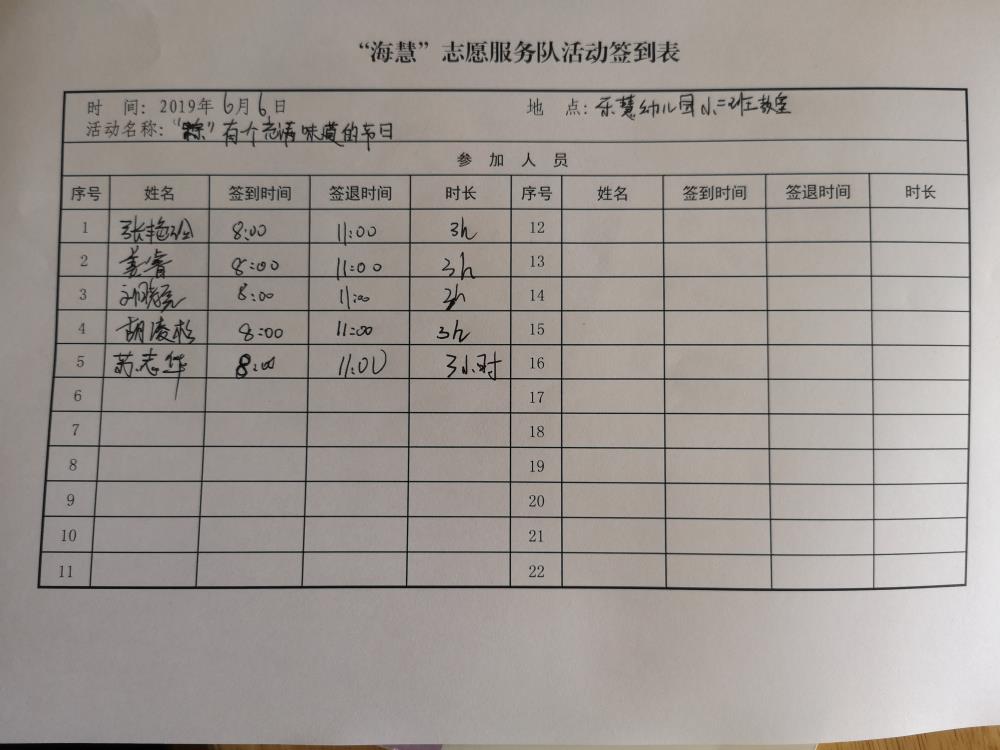 “海慧”志愿服务队活动签到表
时 间: 2019年 6月 6日 地 点: 乐慧幼儿园小二班教室
活动名称: “粽”有个充满味道的节日
参 加 人 员
序号 姓名 签到时间 签退时间 时长 序号 姓名 签到时间 签退时间 时长
1 8:00 11:00 3h 12
2 姜睿 8:00 11:00 3h 13
3 8:00 11:00 3h 14
4 胡凌松 8:00 11:00 3h 15
5 苏志华 8:00 11:00 3小时 16
6 17
7 18
8 19
9 20
10 21
11 22